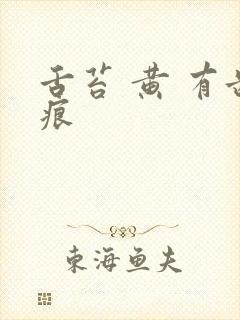 舌苔黄有齿
痕
東海鱼夫